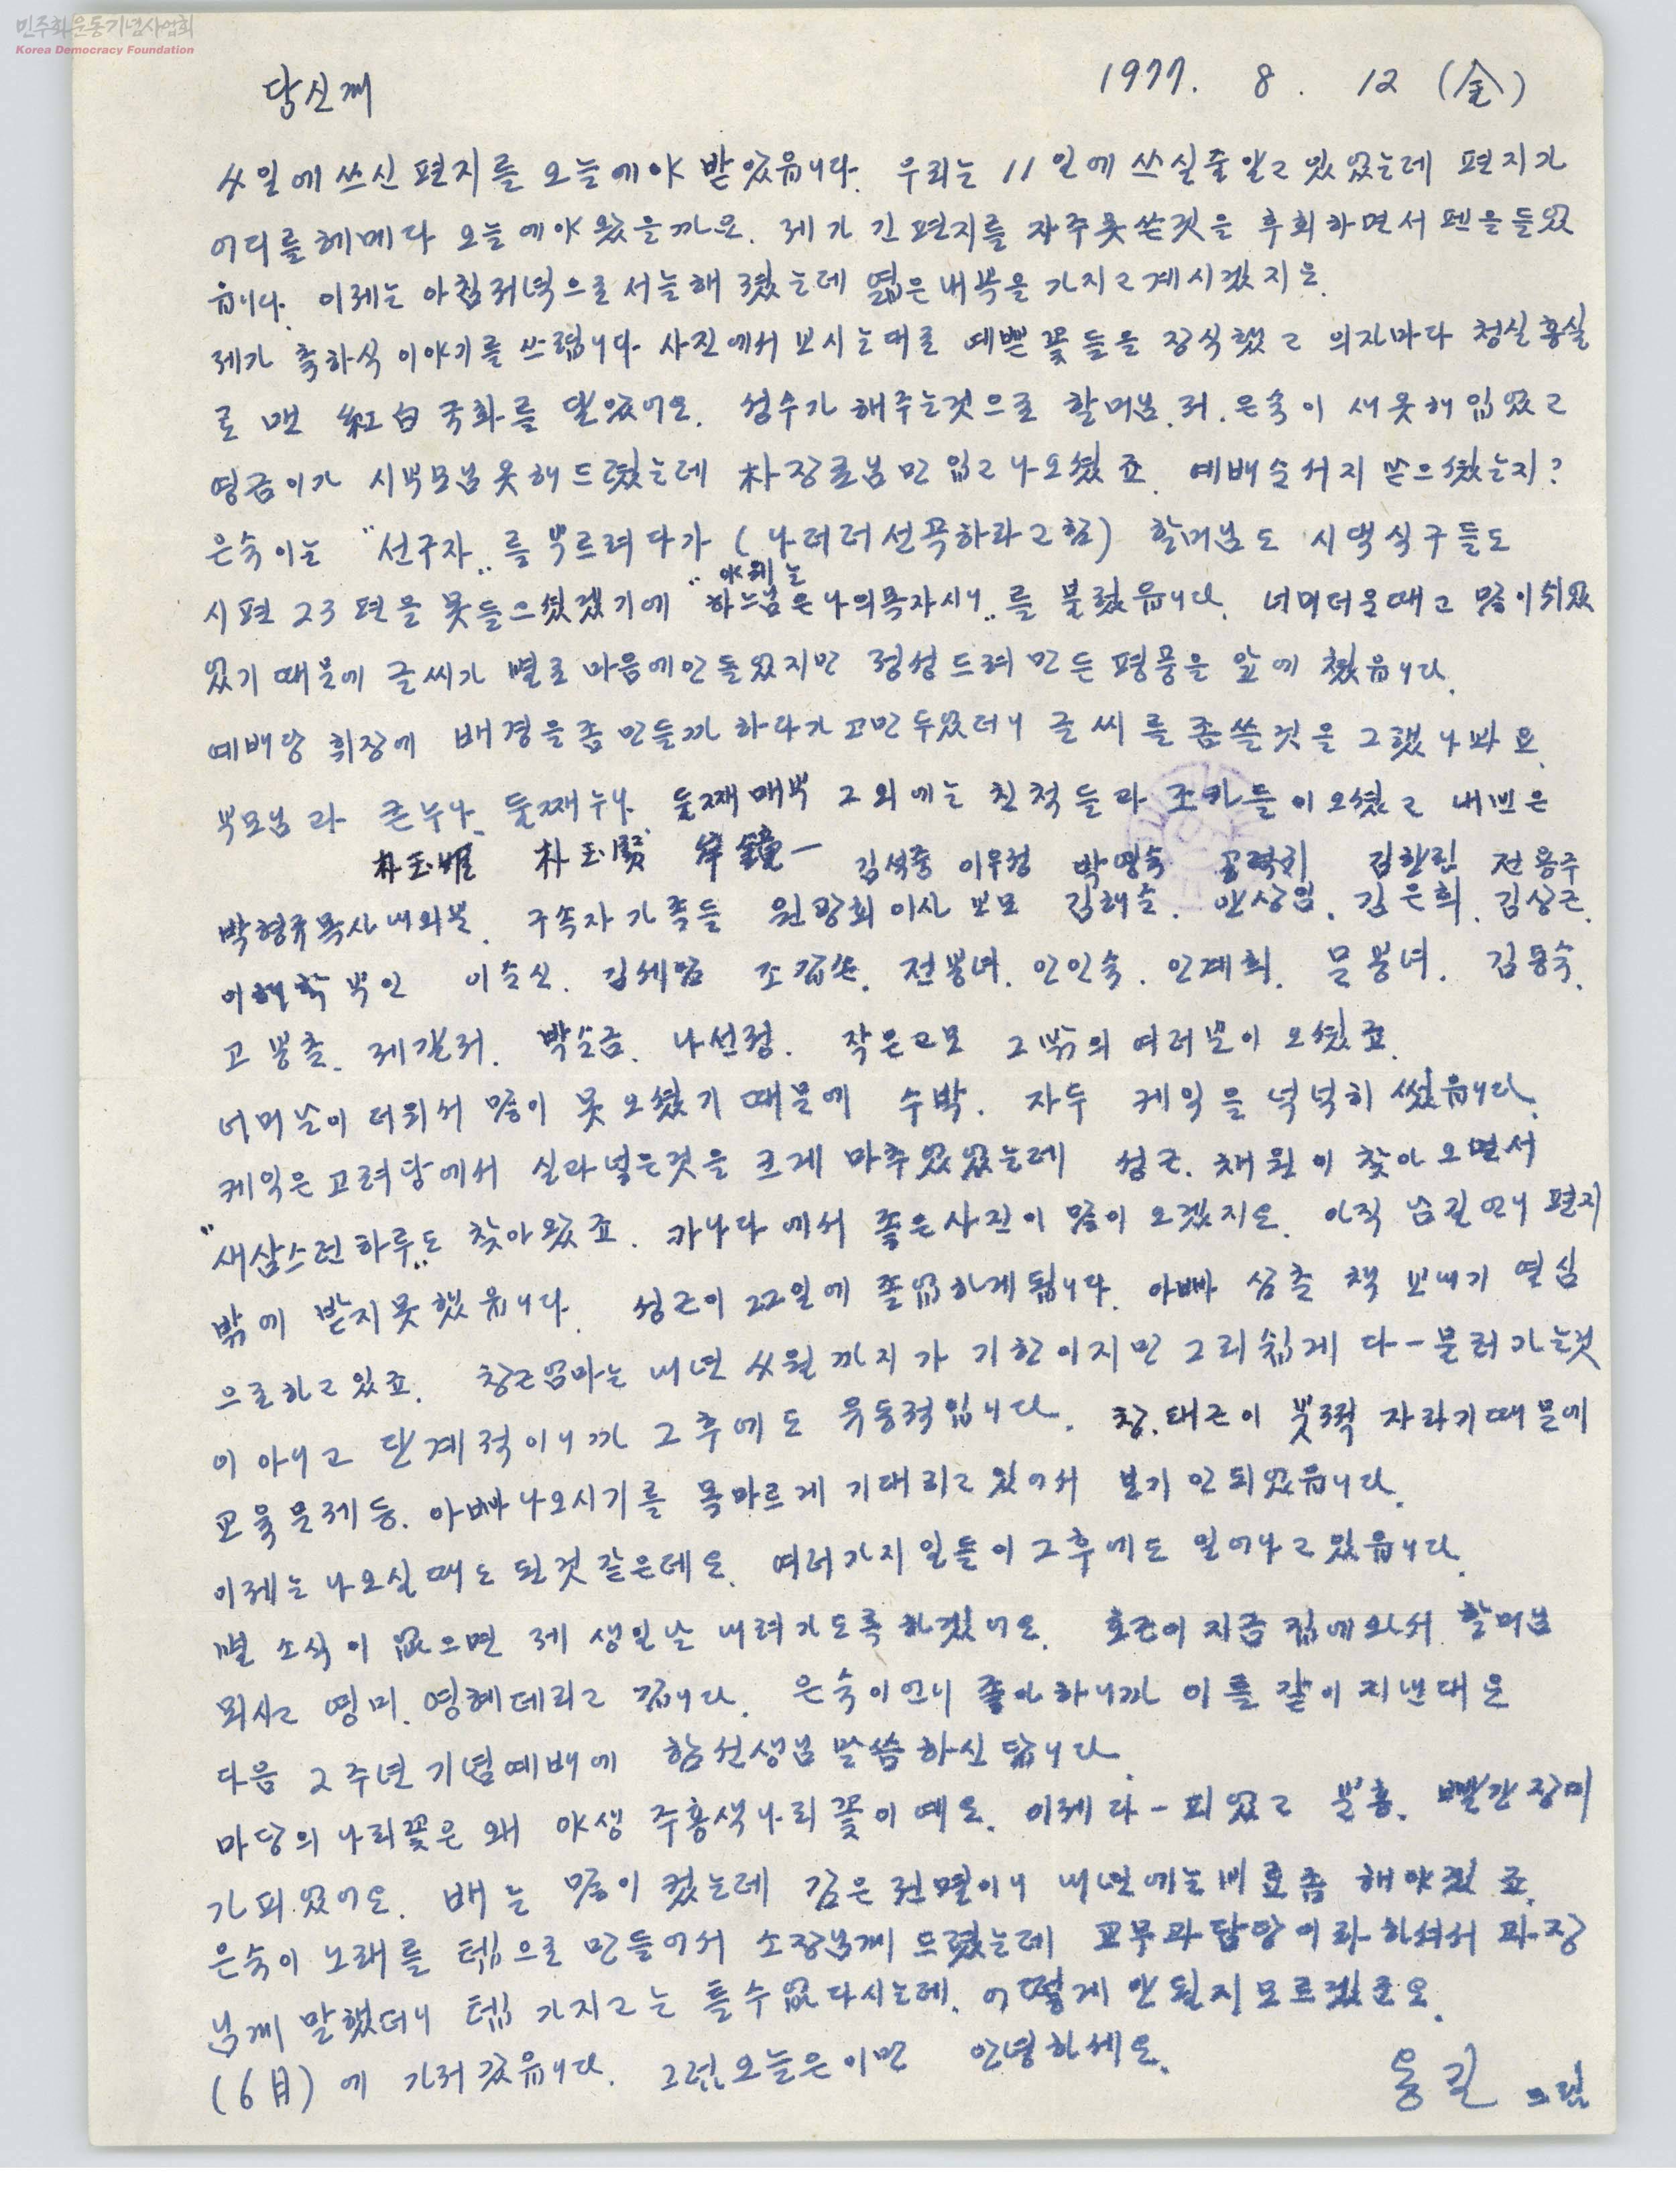 민주화운동기념사업회
Korea Democracy Foundation
당신께 1977. 8. 12 (金)
4일에 쓰신 편지를 오늘에야 받았읍니다. 우리는 11일에 쓰실줄알고 있었는데 편지가
어디를 헤메다 오늘에야 왔을까요. 제가 긴 편지를 자주못쓴것을 후회하면서 펜을들었
읍니다. 이제는 아침저녁으로 서늘해졌는데 엷은내복을 가지고계시겠지요.
제가 축하식 이야기를 쓰렵니다. 사진에서 보시는대로 예쁜 꽃들을 장식했고 의자마다 청실홍실
로 맨 紅白국화를 달았어요. 성수가 해주는것으로 할머님. 저. 은숙이 새옷해입었고
영금이가 시부모님옷해드렸는데 朴장로님만 입고나오셨죠. 예배순서지 받으셨는지?
은숙이는 "선구자"를 부르려다가 (나더러선곡하라고함) 할머님도 시댁식구들도
시편 23편을 못들으셨겠기에 "하느님은나의목자시니"를 불렀읍니다. 너머더운때고 많이쉬었
야훼는
었기 때문에 글씨가 별로 마음에안들었지만 정성드려만든 평풍을 앞에 쳤읍니다.
예배당 휘장에 배경을좀만들까 하다가고만두었더니 글씨를좀쓸것을 그랬나봐요.
부모님과 큰누나. 둘째누나. 둘째매부 그외에는 친척들과 조카들이오셨고 내빈은
朴玉 朴玉賢 鏡一 김석중 이우정 박영숙 공덕귀 김한림 전용주
박형규목사내외분. 구속자가족들 원광회이사 고모 김해순. 안상엽. 김은희. 김상근.
이해학부인 이순신. 김세임 전봉녀. 안인숙. 안계희. 문봉녀. 김동숙.
고봉출. 제갈저. 박순금. 나선정. 작은고모 그밖의 여러분이 오셨죠.
너머날이 더워서 많이 못오셨기때문에 수박. 자두 케익을 넉넉히 썼읍니다.
케익은고려당에서 실과넣은것을 크게 마추었었는데 성근. 채원이 찾아오면서
"새삼스런하루"도 찾아왔죠. 카나다에서 좋은사진이 많이오겠지요. 아직 남길언니편지
밖에 받지못했읍니다. 성근이 22일에 졸업하게됩니다. 아빠 삼촌 책 보내기 열심
으로하고있죠. 창근엄마는 내년 4월까지가 기한이지만 그리쉽게 다-물러가는것
이 아니고 단계적이니까 그후에도 유동적입니다. 창. 태근이 부쩍 자라기때문에
교육문제등. 아빠나오시기를 목마르게 기대리고 있어서 보기안되었읍니다.
이제는 나오실때도 된것같은데요. 여러가지일들이 그후에도 일어나고있읍니다.
별 소식이 없으면 제 생일날 내려가도록하겠어요. 호근이 지금 집에와서 할머님
뫼시고 영미. 영혜데리고 갑니다. 은숙이언니 좋아하니까 이틀같이지낸대요
다음 2주년기념예배에 함선생님 말씀하신답니다.
마당의나리꽃은 왜 야생 주홍색나리꽃이예요. 이제다-피었고 분홍. 빨간장미
가피었어요. 배는 많이컸는데 감은전멸이니 내년에는비료좀 해야겠죠.
은숙이노래를 텦으로 만들어서 소장님께 드렸는데 교무과담당이라하셔서 과장
님께 말했더니 텦 가지고는 틀수없다시는데. 어떻게안될지모르겠군요.
(6日)에 가져갔읍니다. 그럼오늘은이만 안녕하세요.
용길 드림